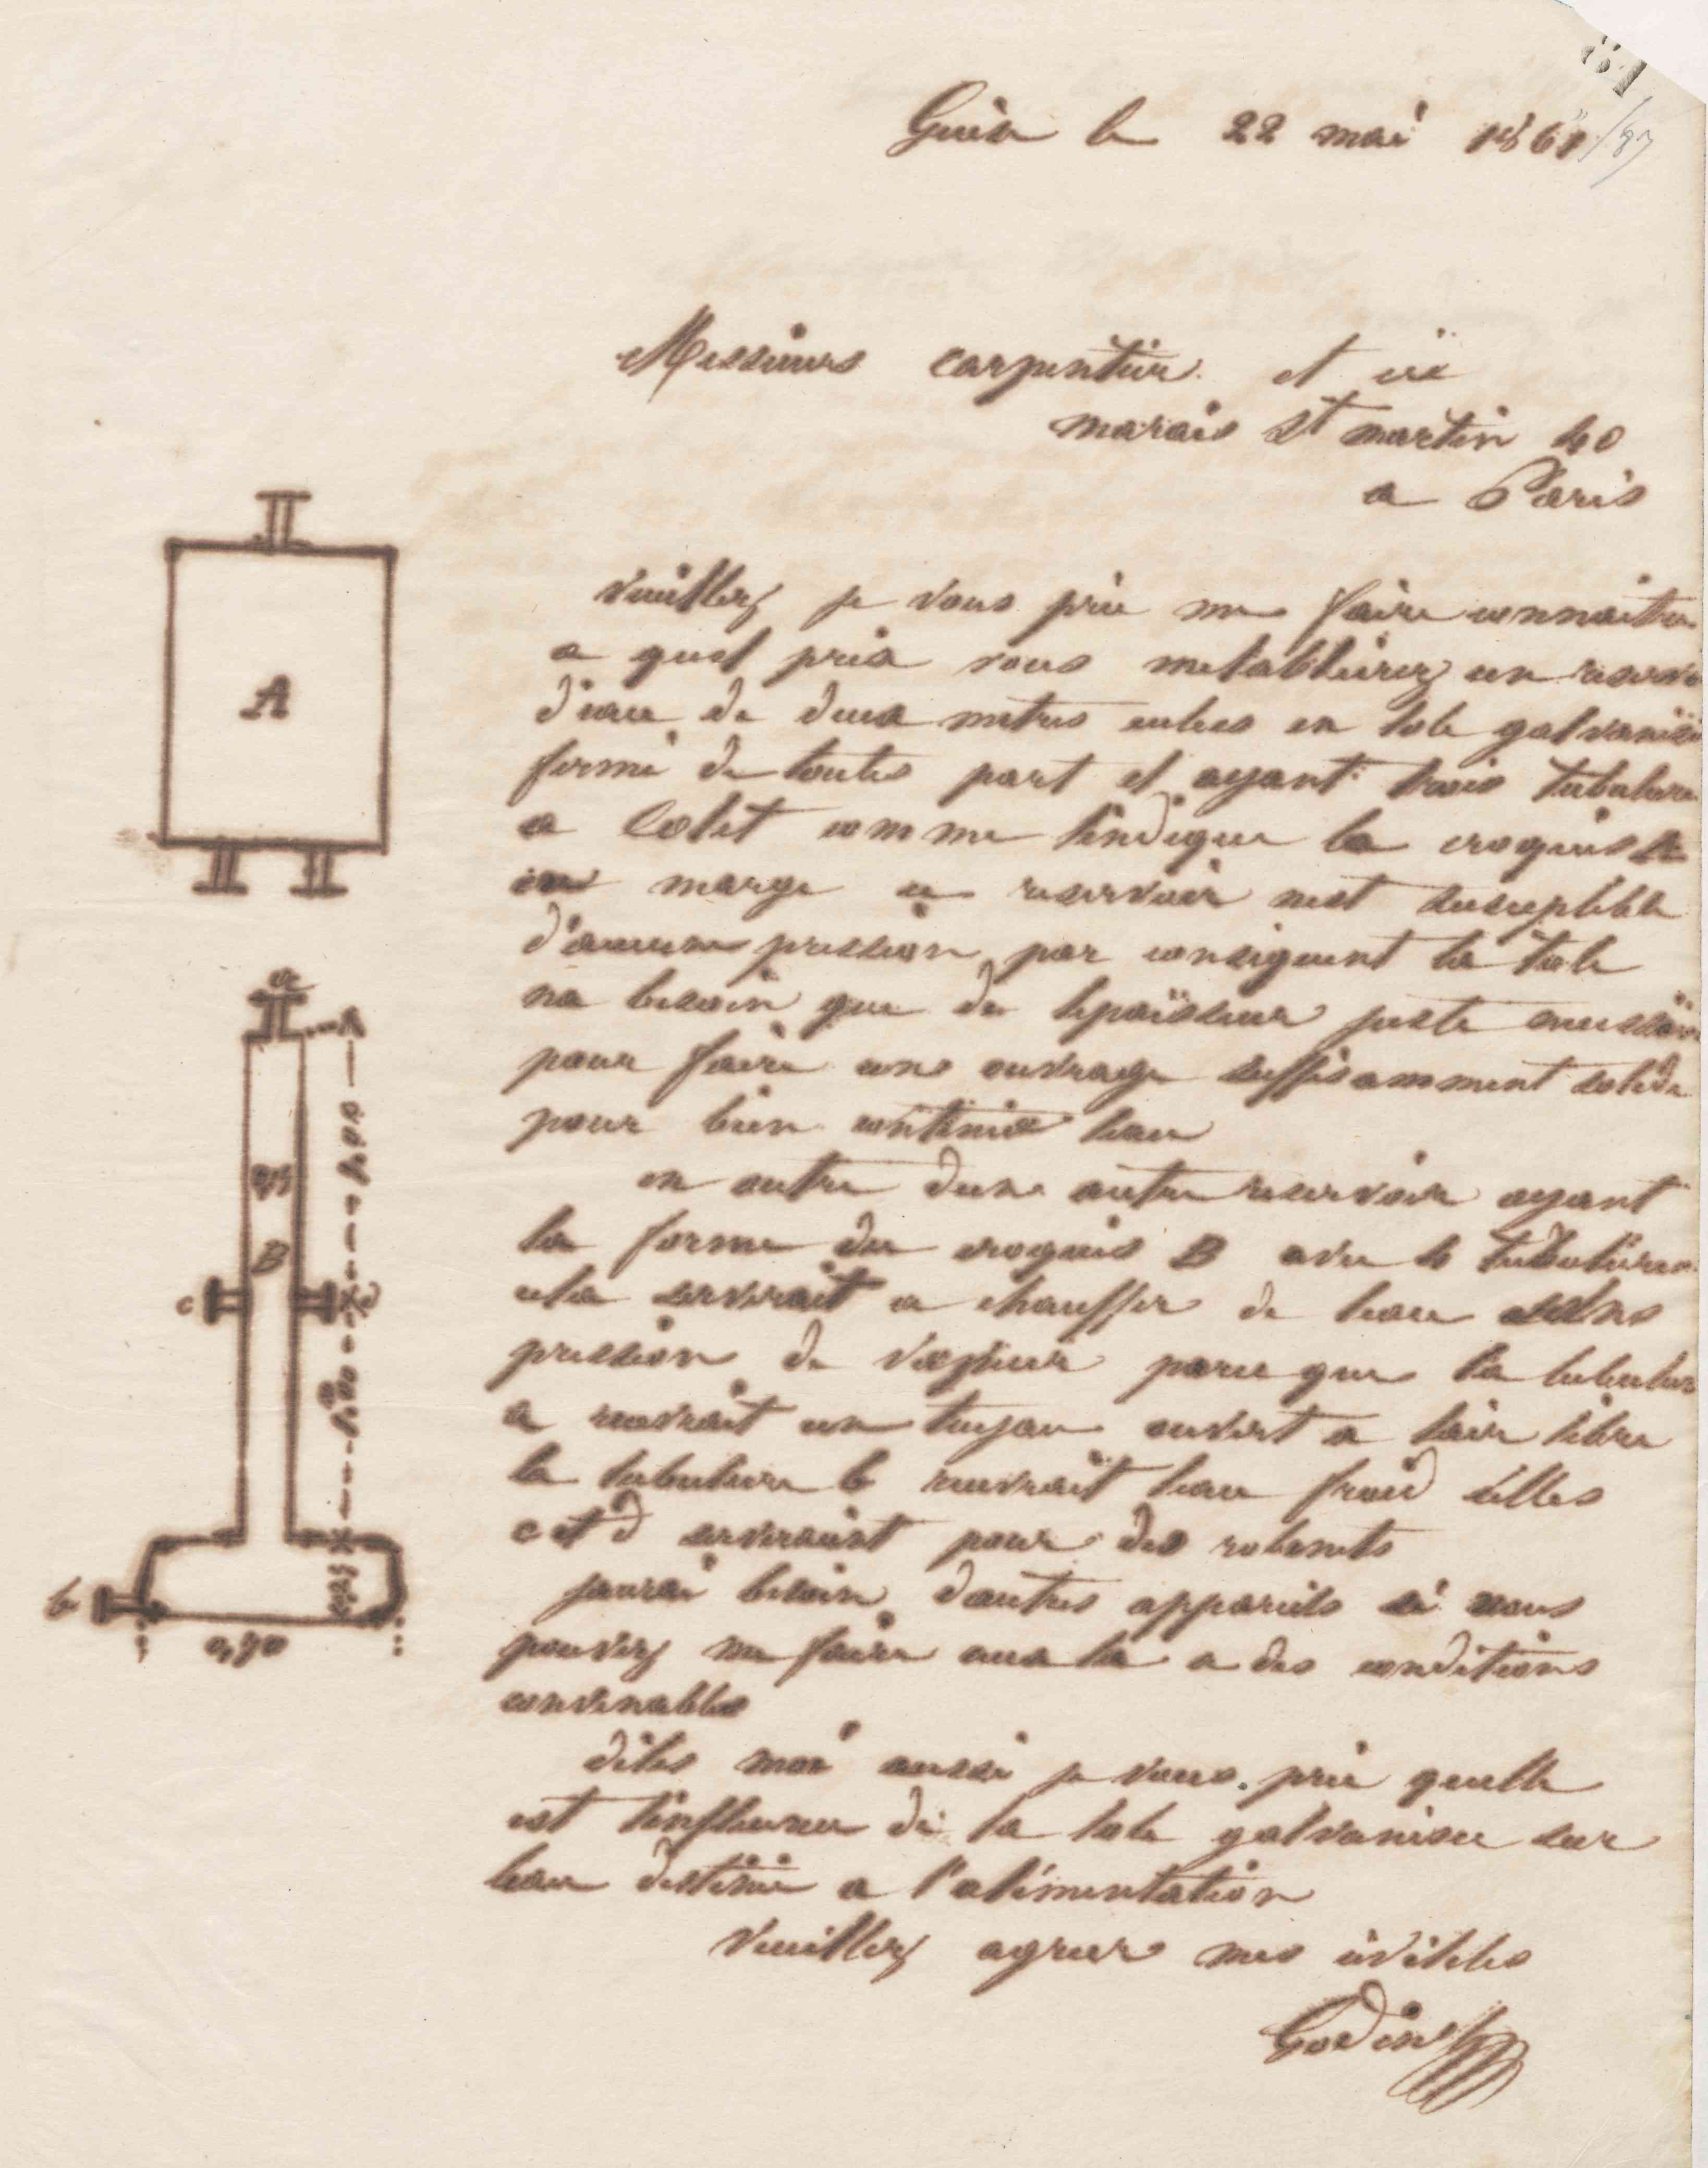 81
Guise le 22 mai 1861 /87
Messieurs carpentier et cie
marais St martin 40
a Paris
veuillez je vous prie me faire connaitre
a quel prix vous metabliriez un reservoir
d'eau de deux metres cubes en tole galvanisée
fermé de toutes part et ayant trois tubulures
a Colet comme lindique le croquis
en marge ce reservoir nest suceptible
d'aucune pression par consequent la tole
na besoin que de lepaisseur juste
pour faire une ouvrage suffisamment solide
pour bien contenir leau
en outre dune autre reservoir ayant
la forme du croquis B avec 4 tubulures
cela serverait a chauffer de leau sans
pression de vapeur parceque la tubulure
a recevrait un tuyau ouvert a lair libre
la tubulure b recevrait leau froid celles
c et d serveraient pour des robenets
jaurai besoin dautres appareils si vous
pouvez me faire ceux la a des conditions
convenables
dites moi aussi je vous prie quelle
est linfluence de la tole galvanisee sur
leau destinée a l'alimentation
veuillez agreer mes civilités
Godin
A
a
B
c
b
0,70